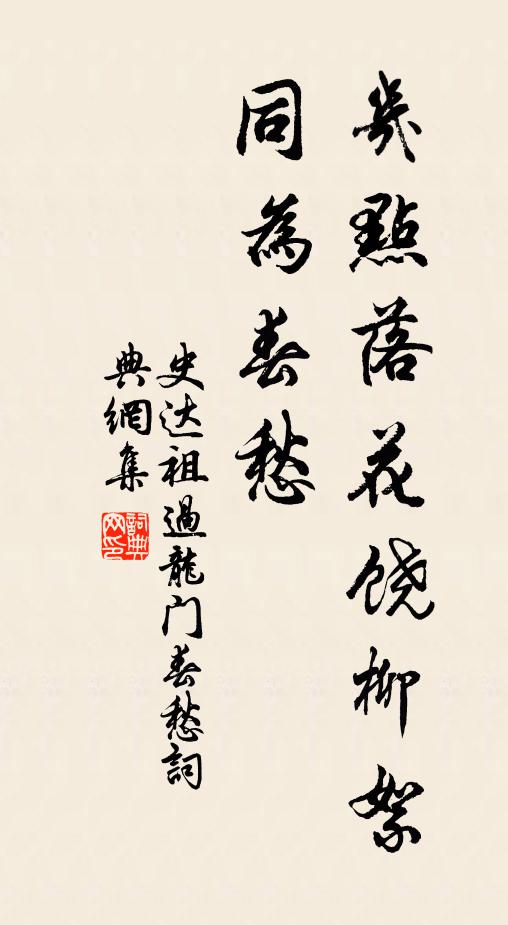 幾點落花饒柳絮
同為春愁
史达祖過龍门春愁詞
典網集
詞典網印